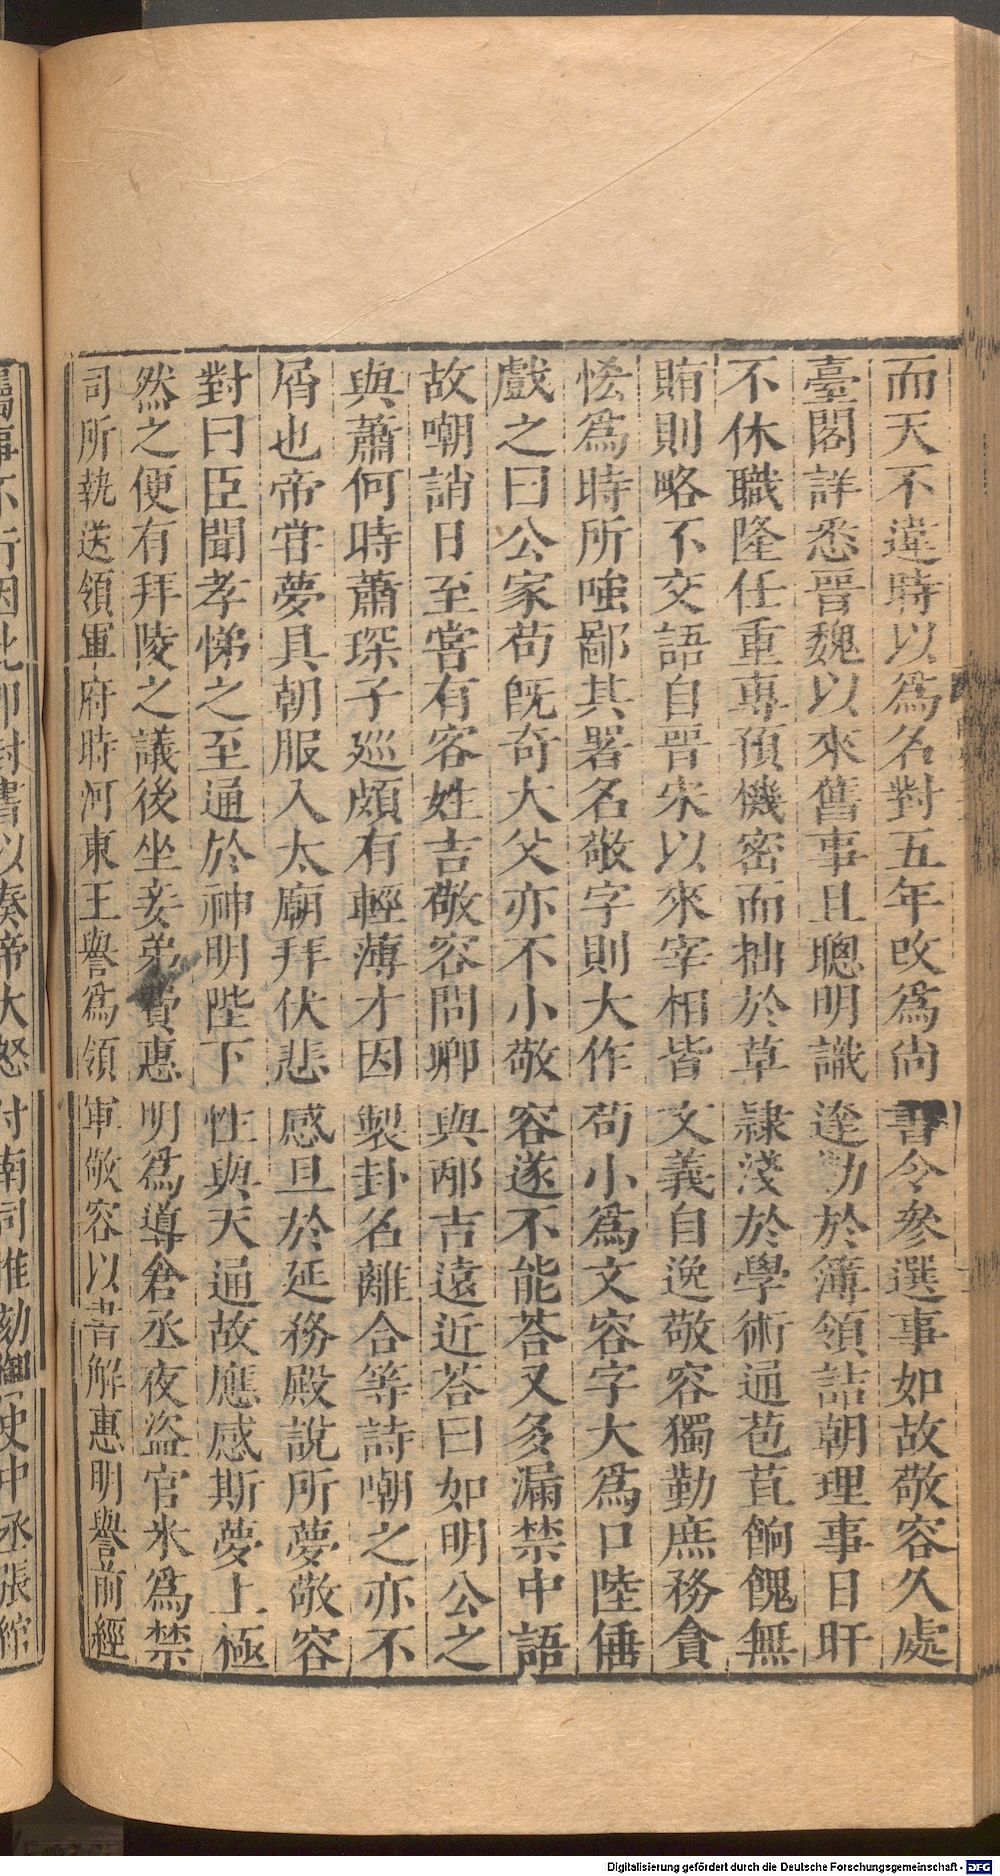 而天不違時以爲名對五年改爲尚書令參選事如故敬容久處
臺閣詳悉晉魏以來舊事且聰明識達勤於簿領詰朝理事日旰
不休職隆任重專預機密而拙於草隷淺於學術通苞苴餉餽無
賄則略不交語自晉宋以來宰相皆文義自逸敬容獨勤庶務貪
恡爲時所嗤鄙其署名敬字則大作苟小爲文容字大爲口陸倕
戲之曰公家苟既奇大父亦不小敬容遂不能荅又多漏禁中語
故嘲誚日至嘗有客姓吉敬容問卿與邴吉遠近荅曰如明公之
與蕭何時蕭琛子巡頗有輕薄才因製卦名離合等詩嘲之亦不
屑也帝嘗夢具朝服入太廟拜伏悲感旦於延務殿說所夢敬容
對曰臣聞孝悌之至通於神明陛下性與天通故應感斯夢上極
然之便有拜陵之議後坐妾弟費惠明爲導倉丞夜盜官米爲禁
司所執送領軍府時河東王譽爲領軍敬容以書解惠明譽前經
屬事不行因此即封書以奏帝大怒付南司推劾御史中丞張綰
Digitalisierung gefördert durch die Deutsche Forschungsgemeinschaft - DFG